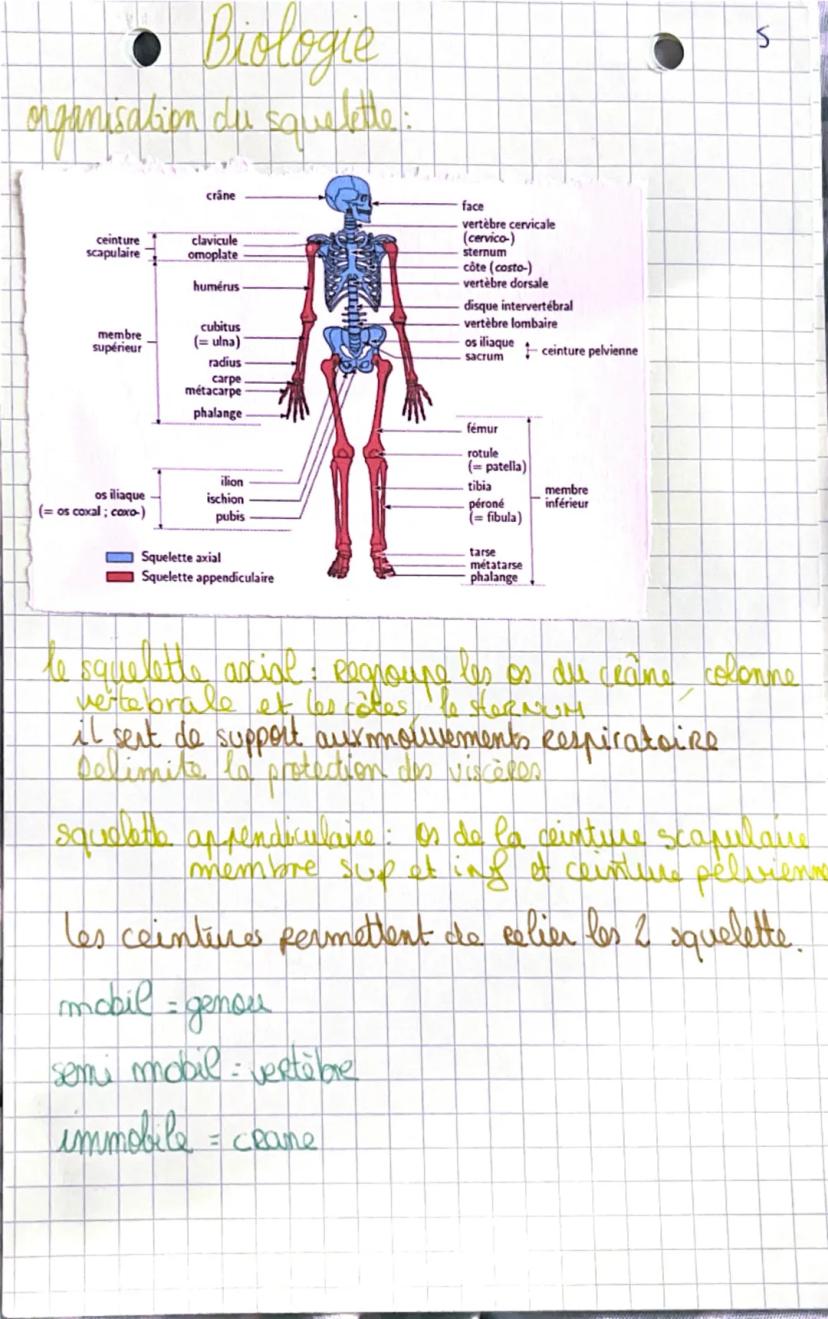 Biologie
5
organisation du squelette :
crâne
face
vertèbre cervicale
(cervico-)
ceinture
scapulaire
clavicule
omoplate
sternum
côte (costo-)
vertèbre dorsale
humérus
disque intervertébral
vertèbre lombaire
membre
supérieur
cubitus
(= ulna)
os iliaque
sacrum
ceinture pelvienne
radius
carpe
métacarpe
phalange
fémur
rotule
(= patella)
tibia
péroné
(= fibula)
membre
inférieur
os iliaque
(= os coxal ; coxo-)
ilion
ischion
pubis
tarse
métatarse
phalange
Squelette axial
Squelette appendiculaire
le squelette axial : Regroupe les os du crâne, colonne
vertebrale et les côtes, le sternum
il sert de support aux mouvements respiratoire
Delimite la protection des viscères
squelette appendiculaire : os de la ceinture scapulaire
membre sup et inf et ceinture pelvienne
les ceintures permettent de relier les 2 squelette.
mobil = genou
semi mobil = vertèbre
immobile = crane